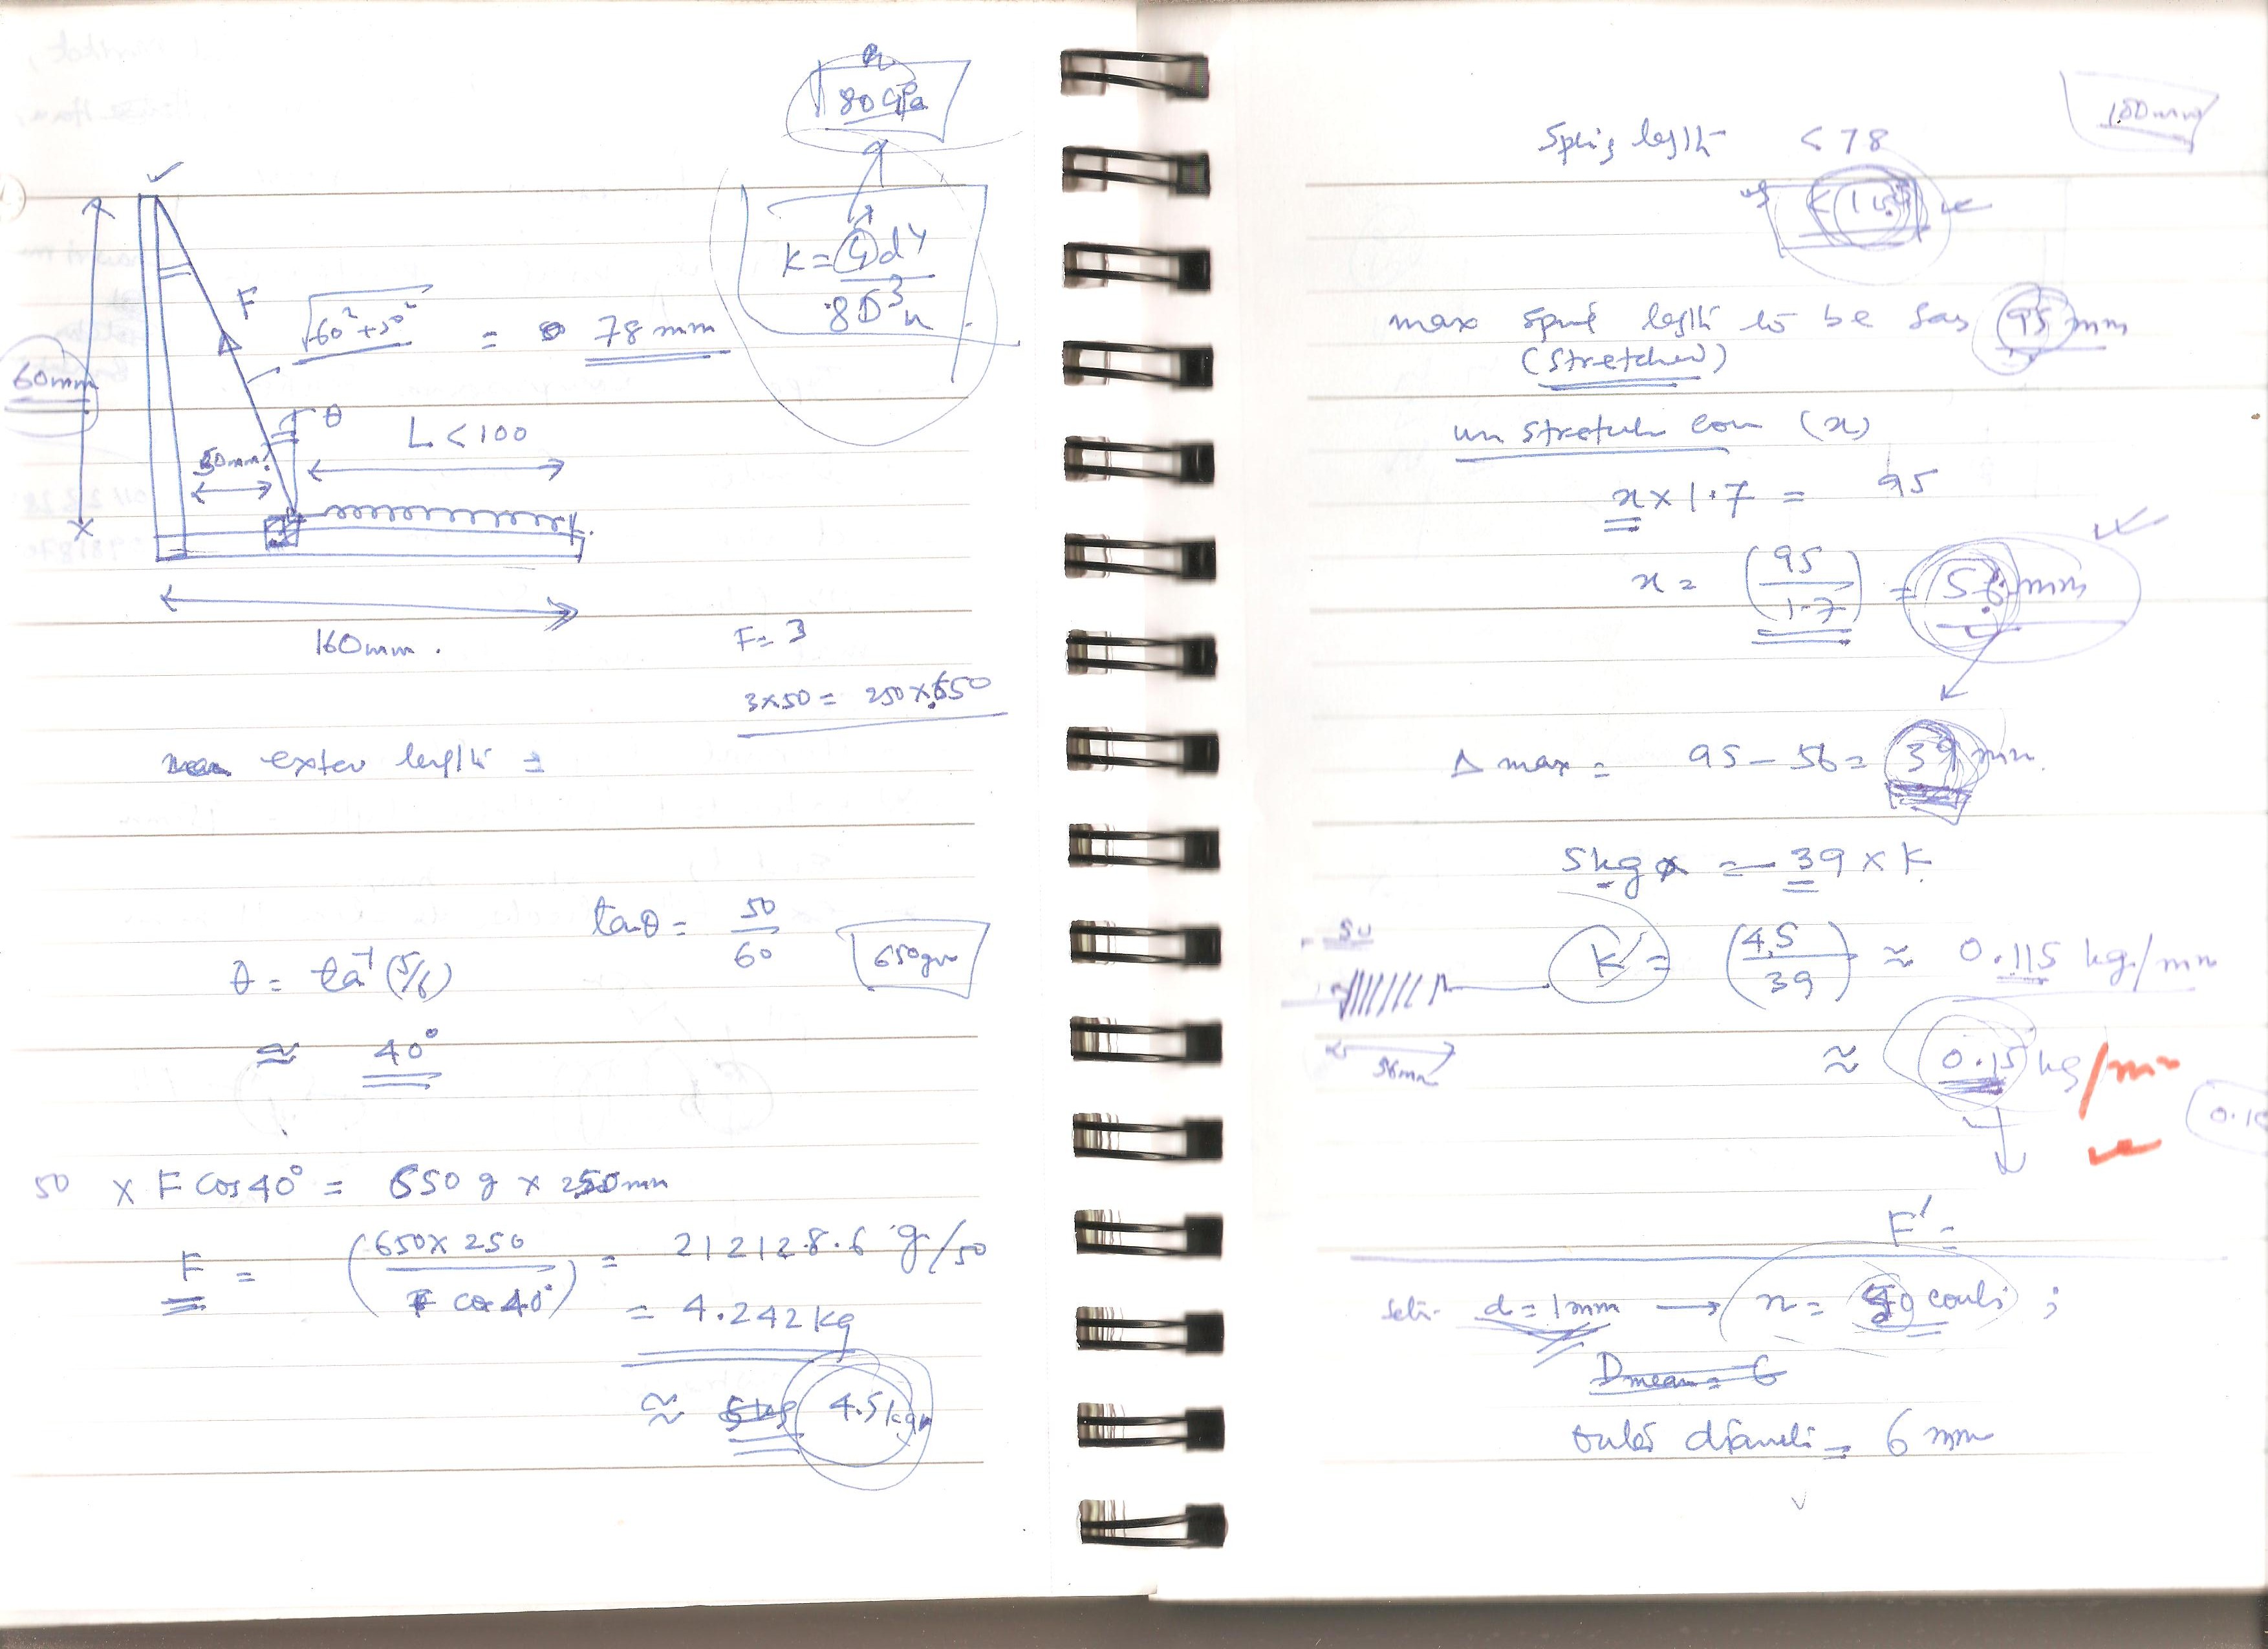 80 GPa
k = Gd⁴ / 8D³n
F
√60²+50² = 78 mm
60mm
θ
L < 100
50mm
160mm.
F = 3
3×50 = 250×650
exten length =
tanθ = 50/60
650gm
θ = tan⁻¹(5/6)
≈ 40°
50 × F cos40° = 650 g × 250mm
F = (650×250 / cos 40°) = 212128.6 g/50
= 4.242kg
≈ 5kg 4.5kgm
100mm
Spring length < 78
max spring length to be say 95 mm
(stretched)
un stretch con (x)
x × 1.7 = 95
x = (95/1.7) = 56 mm
Δmax = 95 – 56 = 39 mm.
5kg = 39 × k
50
k' = (4.5/39) ≈ 0.115 kg/mm
56mm
≈ 0.15 kg/mm
F' =
d = 1mm → n = 50 coils ;
Dmean = 6
outer diameter = 6 mm